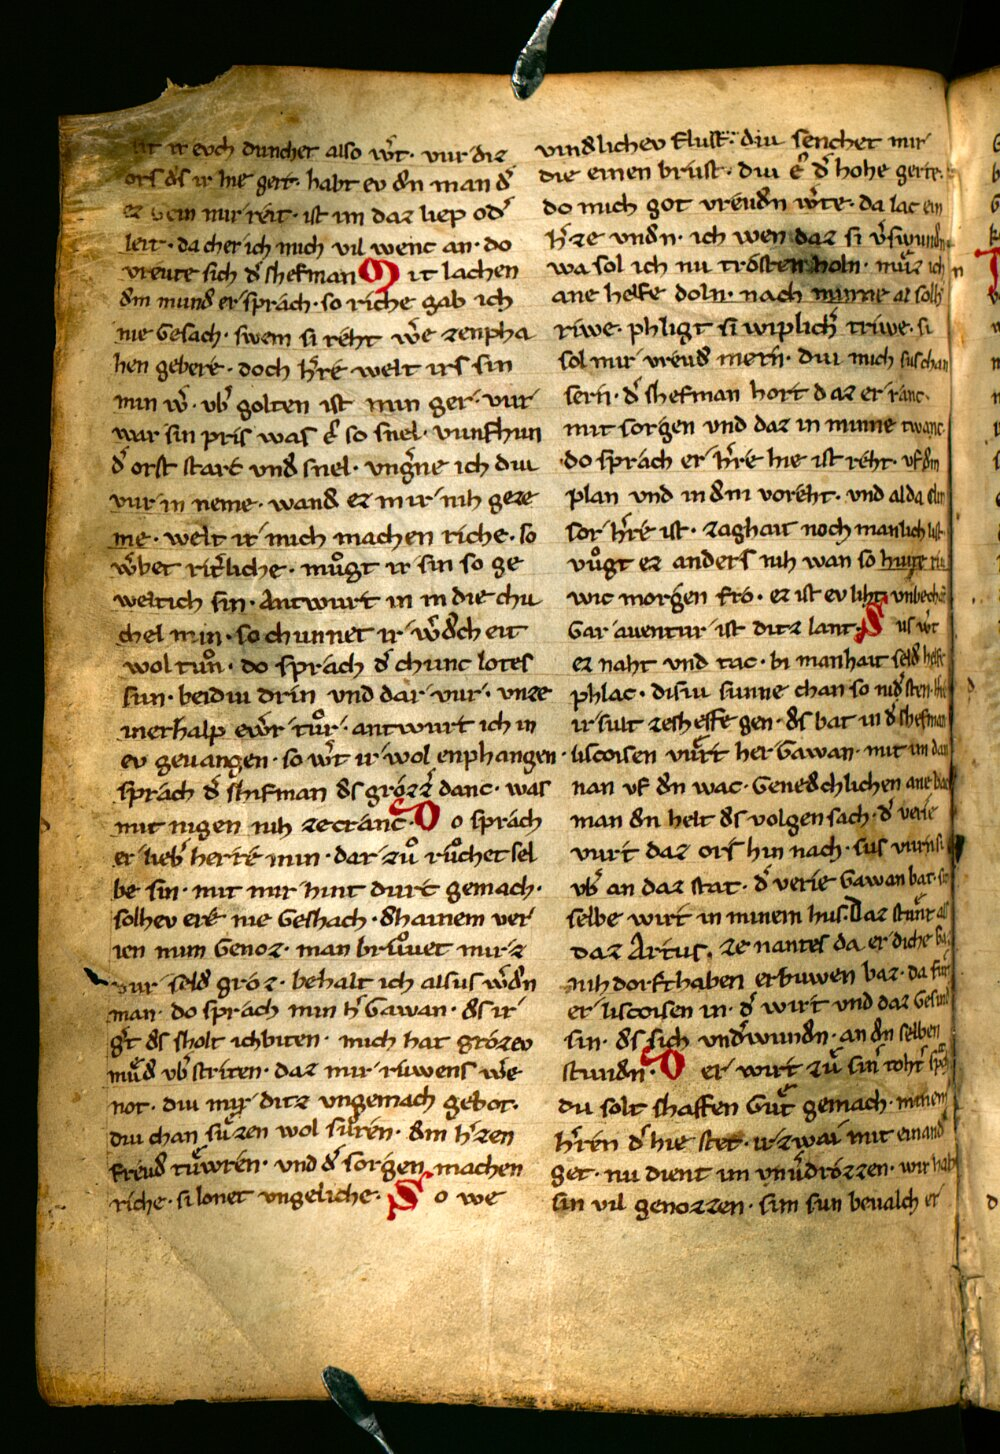 ir evch dunchet also wͥt · vur diz
ors ds ir hie gert · habt ev dn man dͥ
ez vein mir reit · ist im daz liep odͥ
leit · da cher ich mich vil wenc an · do
vreute sich dͥ shefman Mit lachen
dm mund er sprach · so riche gab ich
nie Gesach · swem si reht wͥe zenpha
hen gebere · doch hͥre welt irs sin
min wͥ · vbͥ golten ist min ger · vur
war sin pris was eͥ so snel · vunfhun
dͥ orst starc vnd snel · vngͥne ich diu
vur in neme · wand ez mir nih geze
me · welt ir mich machen riche · so
wͥbet ritͥliche · muͦgt ir sin so ge
weltich sin · Antwurt in in die chu
chel min · so chunnet ir wͥdch eit
wol tuͦn · do sprach dͥ chunc lotes
sun · beidiu drin vnd dar vur · vnze
inerhalp ewͥr tuͦr · antwurt ich in
ev gevangen · so wͥt ir wol enphangen
sprach dͥ shifman ds grozzͥ danc · was
mit nigen nih zecranc · Do sprach
er liebͥ herre min · dar zuͦ ruͦchet sel
be sin · mit mir hint durt gemach ·
solhev ere nie Geshach · dhainem ver
ien mim Genoz · man bruͦuet mirz
vur seld groz · behalt ich alsus wͥdn
man · do sprach min hͥ Gawan · ds ir
gͥt ds sholt ich biten · mich hat grozev
muͤd vbͥ striten · daz mir ruwens wͥe
not · diu mir ditz vngemach gebot ·
diu chan suͤzen wol suͦren · dm hͥzen
freud tuͤwren · vnd dͥ sorgen machen
riche · si lonet vngeliche · So we
vindlichev flust · diu senchet mir
die einen brust · diu eͥ dͥ hohe gerte ·
do mich got vreudn wͥte · da lac ein
hͥze vndn · ich wen daz si vͥswundn
wa sol ich nu trosten holn · muͤz ich
ane helfe doln · nach minne al solh
riwe · phligt si wiplichͥ triwe · si
sol mir vreud mern · diu mich sus chan
sern · dͥ shefman hort daz er ranc
mit sorgen vnd daz in minne twanc
do sprach er hͥre hie ist reht · vf dm
plan vnd in dm voreht · vnd alda clin
sor hͥre ist · zaghait noch manlich list
vuͦgt ez anders nih wan so hiute riu
wic morgen fro · ez ist ev liht vnbechant
Gar auentur ist ditz lant · Sus wͥt
ez naht vnd tac · bi manhait seld helfe
phlac · disiu sunne chan so nidͥ sten · hie
ir sult zescheffe gen · ds bat in dͥ shefman
liscoisen vuͤrt her Gawan · mit im dan
nan vf dn wac · Genedchlichen ane bac
man dn helt ds volgen sach · dͥ verie
vurt daz ors hin nach · sus vurn si
vbͥ an daz stat · dͥ verie Gawan bat · sit
selbe wirt in minem hus · Daz stuͤnt als
daz Artus · ze nantes da er diche saz
nih dorft haben erbuwen baz · da fuͤrt
er liscoisen in · dͥ wirt vnd daz Gesind
sin · ds sich vndͥwundn · an dn selben
stundn · Der wirt zuͤ sinͥ tohtͥ sprach
du solt shaffen Guͤt gemach · minem
hͥren dͥ hie stet · ir zwai mit einand
get · nu dient im vnuͥdrozzen · wir hab
sin vil genozzen · sim sun beualch er